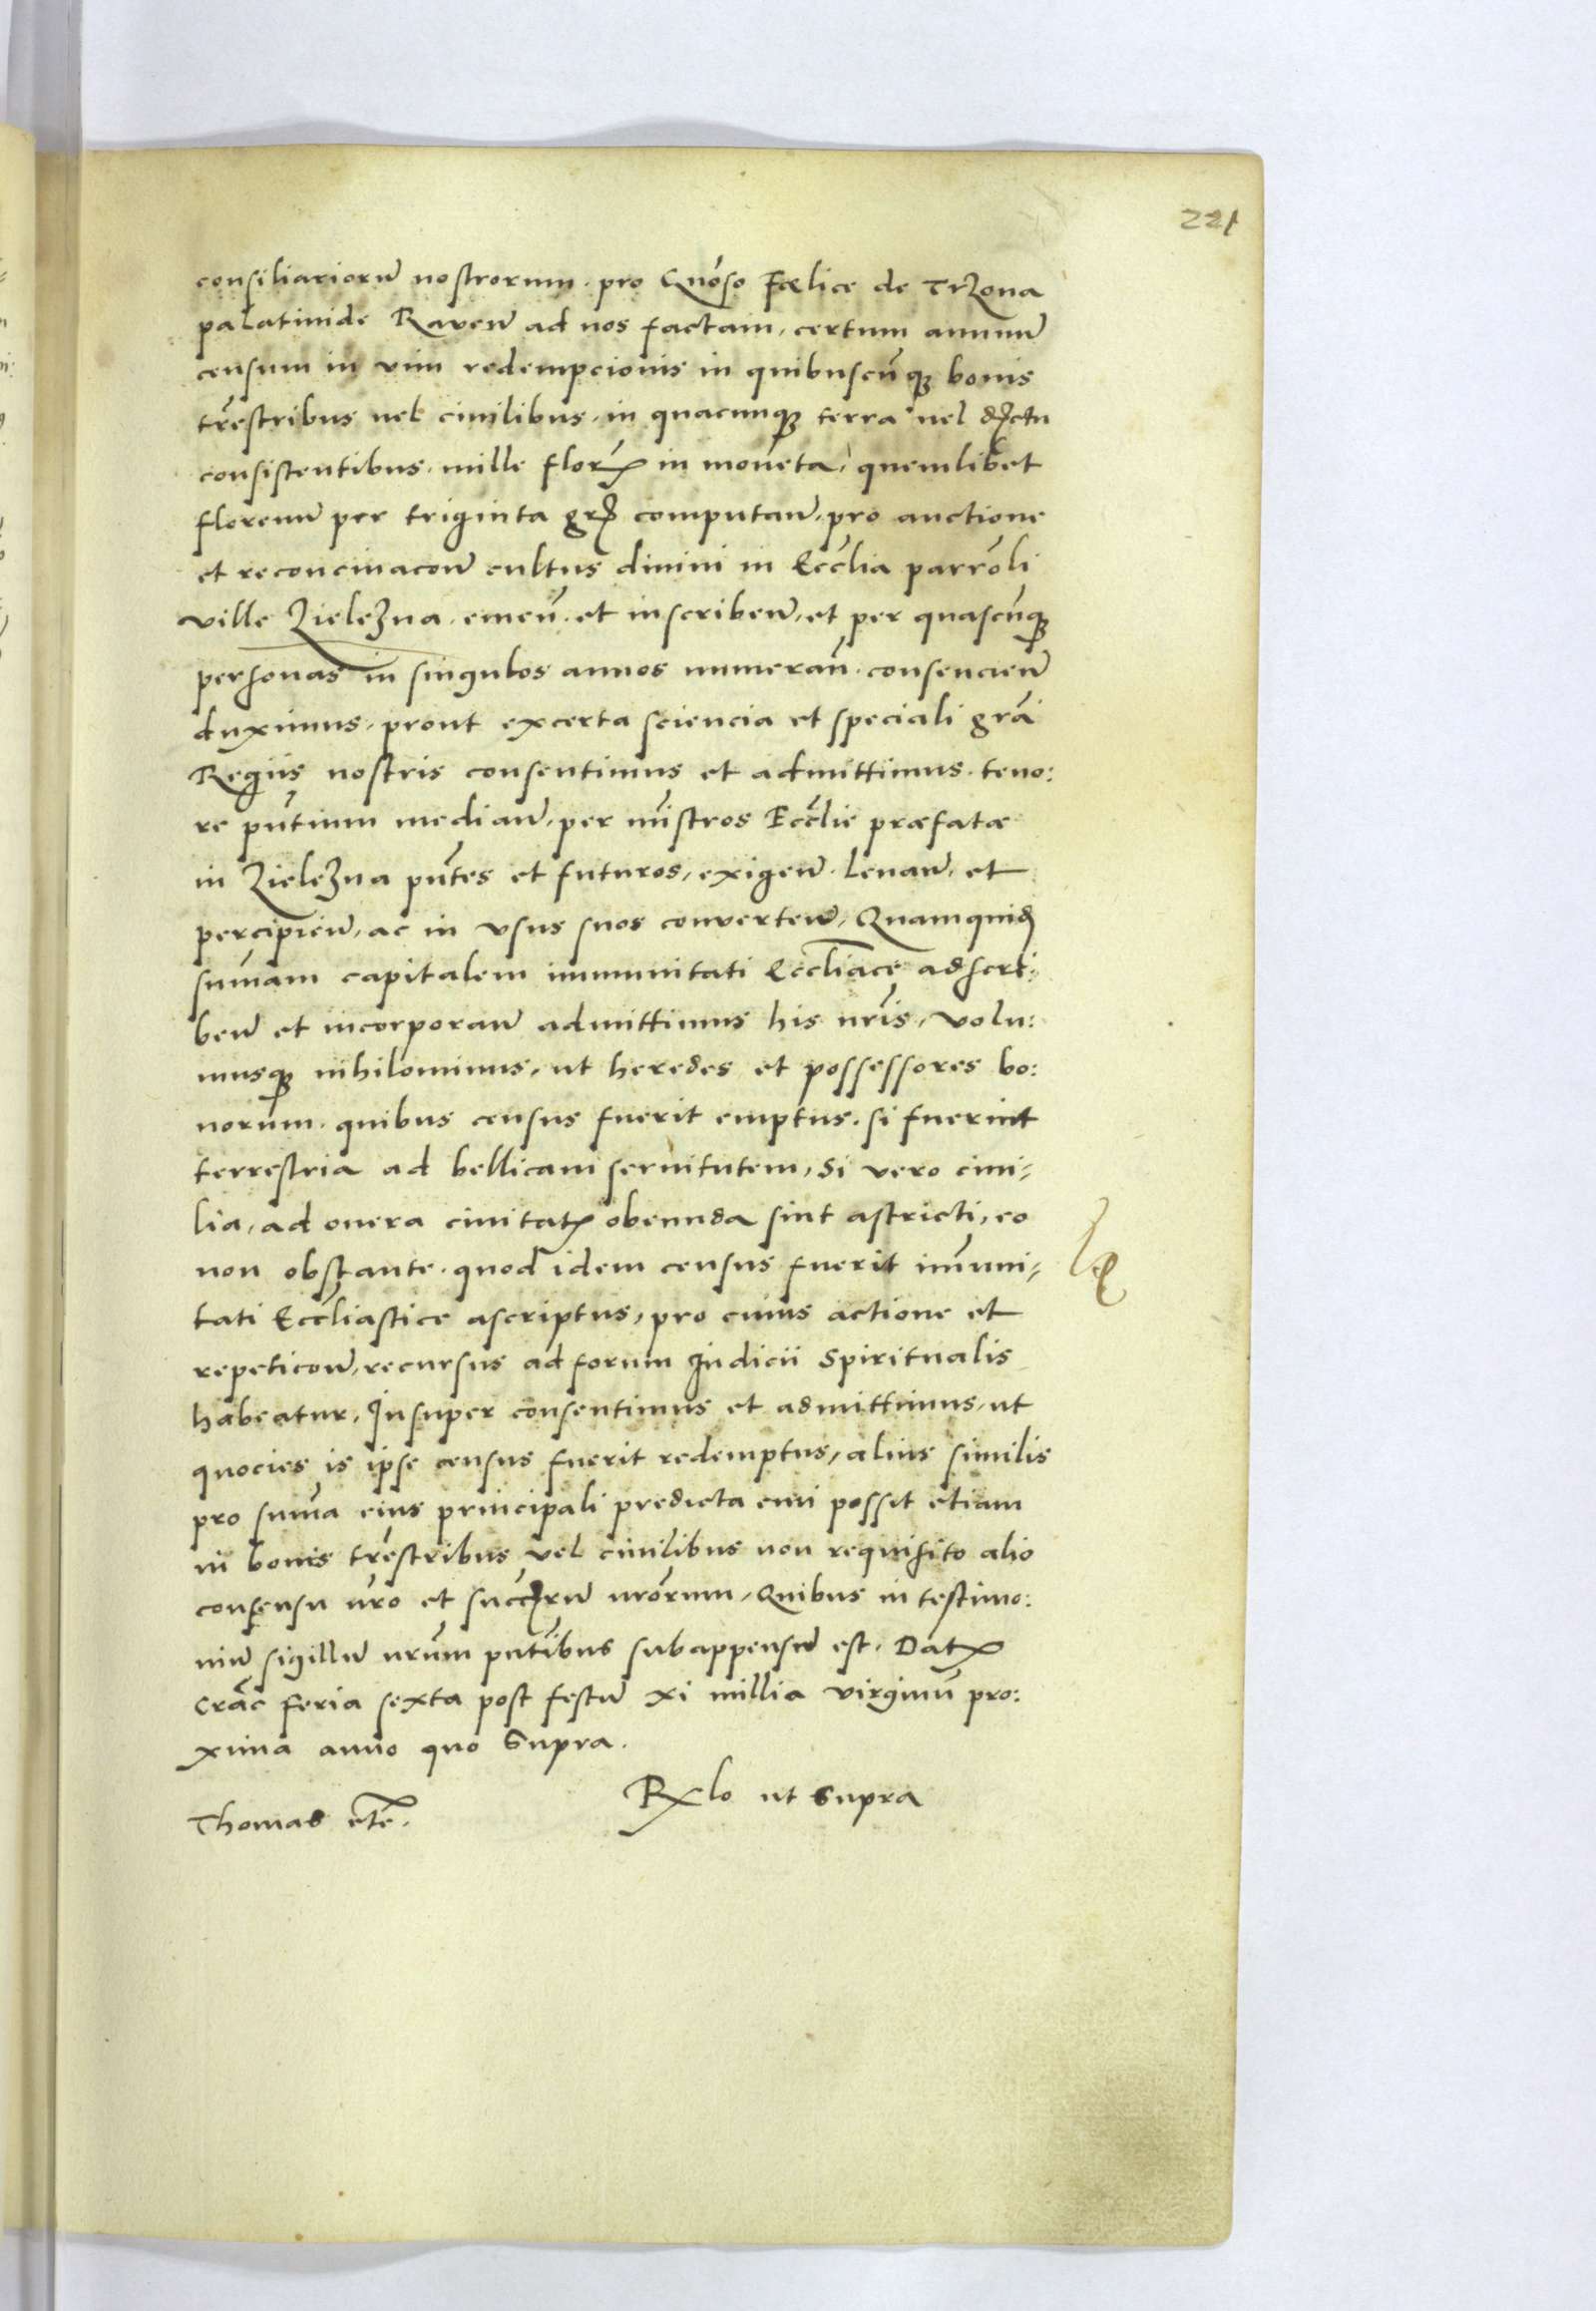 221
consiliariorū nostrorum. pro Gn̄oso Fœlice de Trzona
palatinide Ravenn̄ ad nos factam, certum annuū
censum in vim redempcionis in quibuscūq; bonis
tr̄estribus vel civilibus, in quacunq; terra vel dr̄ctu
consistentibus. mille flor̄ in moneta, quemlibet
florenū per triginta gr̄ computan̄, pro auctione
et reconcinacōn̄ cultus divini in Eccl̄ia parrōli
ville Zielezna. emen̄. et inscriben̄, et per quascūq;
personas in singulos annos numeran̄. consencien̄
duximus, prout ex certa sciencia et speciali gr̄ai
Regiis nostris consentimus et admittimus. teno:
re pn̄tium median̄, per mīstros Eccl̄ie præfatæ
in Zielezna pn̄tes et futuros, exigen̄. levan̄, et
percipien̄, ac in vsus suos converten̄, Quamquid̄
sum̄am capitalem immunitati Eccl̄iace adscri:
ben̄ et incorporan̄ admittimus his nr̄is, volu:
musq; nihilominus, ut heredes et possessores bo:
norum. quibus census fuerit emptus. si fuerint
terrestria ad bellicam servitutem, Si vero civi:
lia, ad onera civitat̄ obeunda sint astricti, eo
non obstante. quod idem census fuerit im̄uni:
tati Eccl̄iastice ascriptus, pro cuius actione et
repeticōn̄, recursus ad forum Judicii Spiritualis
habeatur, Insuper consentimus et admittimus, ut
quocies is ipse census fuerit redemptus, alius similis
pro sum̄a eius principali predicta emi possit etiam
in bonis tr̄estribus vel civilibus non requisito alio
consensu nr̄o et succr̄ū nr̄orum, Quibus in testimo:
niū sigillū nr̄um pn̄tibus subappensū est. Dat̄
Crac̄ feria sexta post festū xi millia virginū pro:
xima anno quo supra.
R̄lo ut supra
Thomas etc̄.